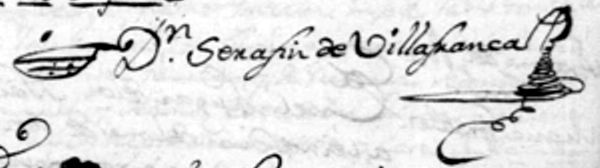 Dn. Serafin de Villafranca